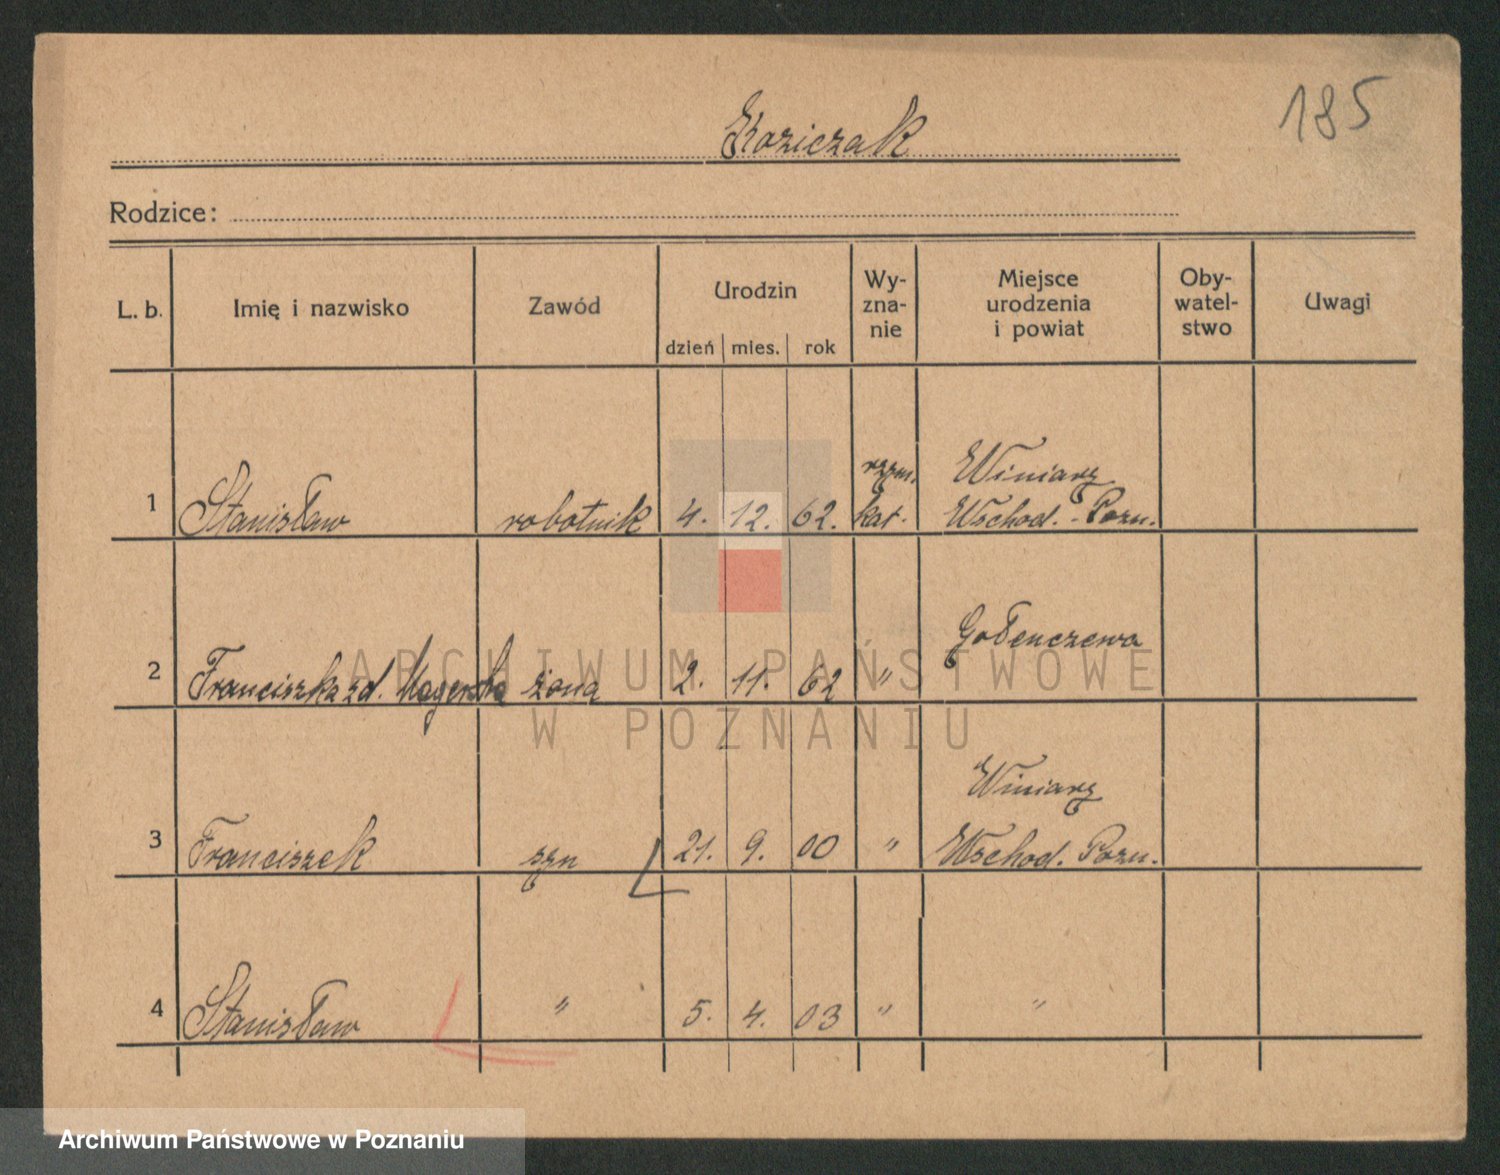 185
Koziczak
Rodzice:
L. b.
Imię i nazwisko
Zawód
Urodzin
dzień
mies.
rok
Wy-
zna-
nie
Miejsce
urodzenia
i powiat
Oby-
watel-
stwo
Uwagi
1
Stanisław
robotnik
4.
12.
62.
rzym.
kat.
Winiary
Wschod. - Pozn.
2
Franciszka zd.
żona
2.
11.
62
"
Gołenczewo
3
Franciszek
syn
21.
9.
00
"
Winiary
Wschod. Pozn.
4
Stanisław
"
5.
4.
03
"
"
ARCHIWUM PAŃSTWOWE
W POZNANIU
Archiwum Państwowe w Poznaniu